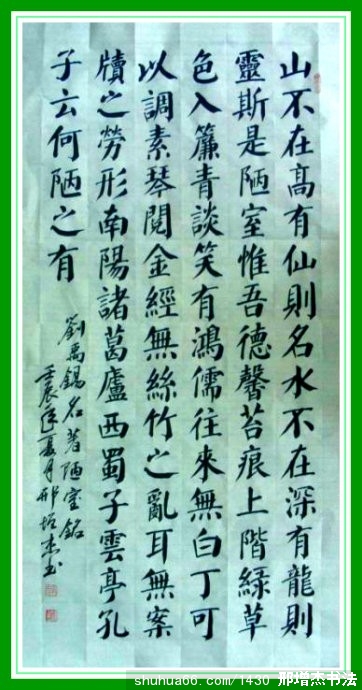 山不在高有仙則名水不在深有龍則
靈斯是陋室惟吾德馨苔痕上階綠草
色入簾青談笑有鴻儒往來無白丁可
以調素琴閱金經無絲竹之亂耳無案
牘之勞形南陽諸葛廬西蜀子雲亭孔
子云何陋之有
劉禹錫名著陋室銘
壬辰年夏月邢增杰书
shuhua66.com/1430 邢增杰书法